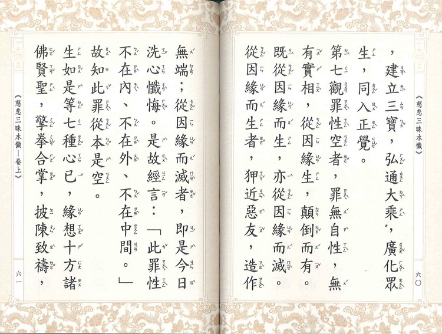 ，建立三寶，弘通大乘，廣化眾
生，同入正覺。
第七觀罪性空者，罪無自性，無
有實相，從因緣生，顛倒而有。
既從因緣而生，亦從因緣而滅。
從因緣而生者，狎近惡友，造作
《慈悲三昧水懺》
六〇
無端；從因緣而滅者，即是今日
洗心懺悔。是故經言：「此罪性
不在內、不在外、不在中間。」
故知此罪從本是空。
生如是等七種心已，緣想十方諸
佛賢聖，擎拳合掌，披陳致禱，
《慈悲三昧水懺－卷上》
六一